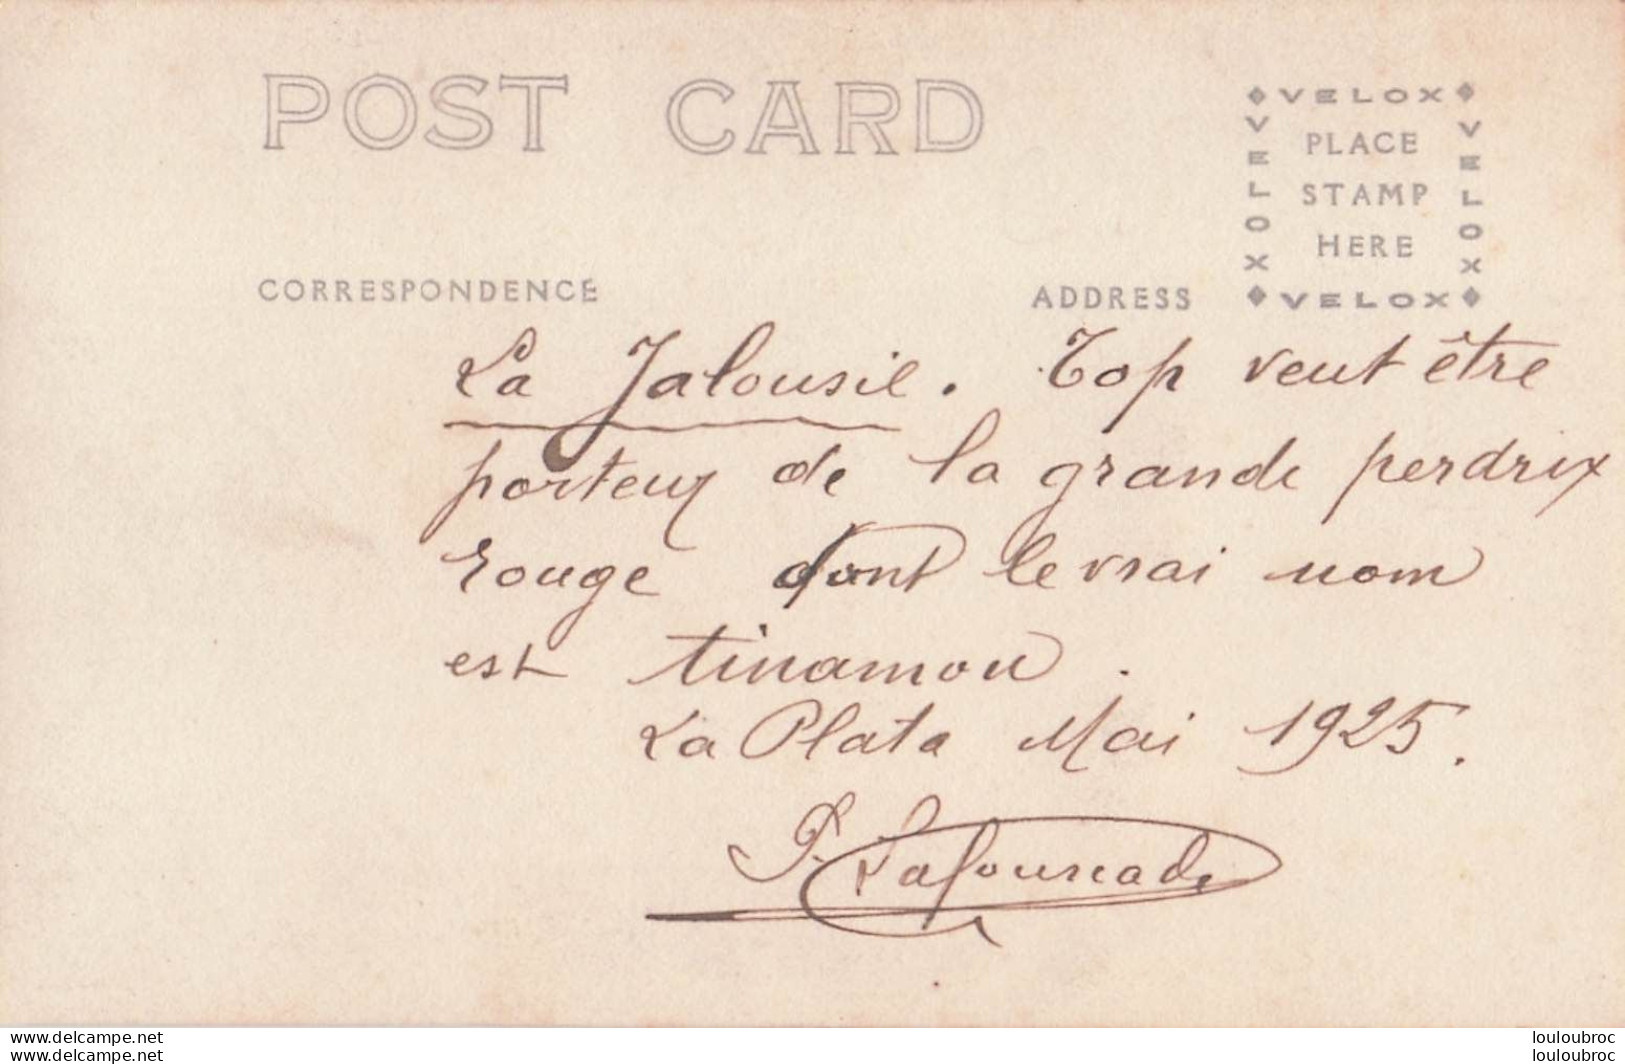 POST CARD
VELOX
VELOX PLACE VELOX
STAMP
HERE
VELOX
CORRESPONDENCE
ADDRESS
La Jalousie. Top veut être
porteur de la grande perdrix
rouge dont le vrai nom
est tinamou.
La Plata Mai 1925.
P. Lafourcade
www.delcampe.net
louloubroc
www.delcampe.net
louloubroc